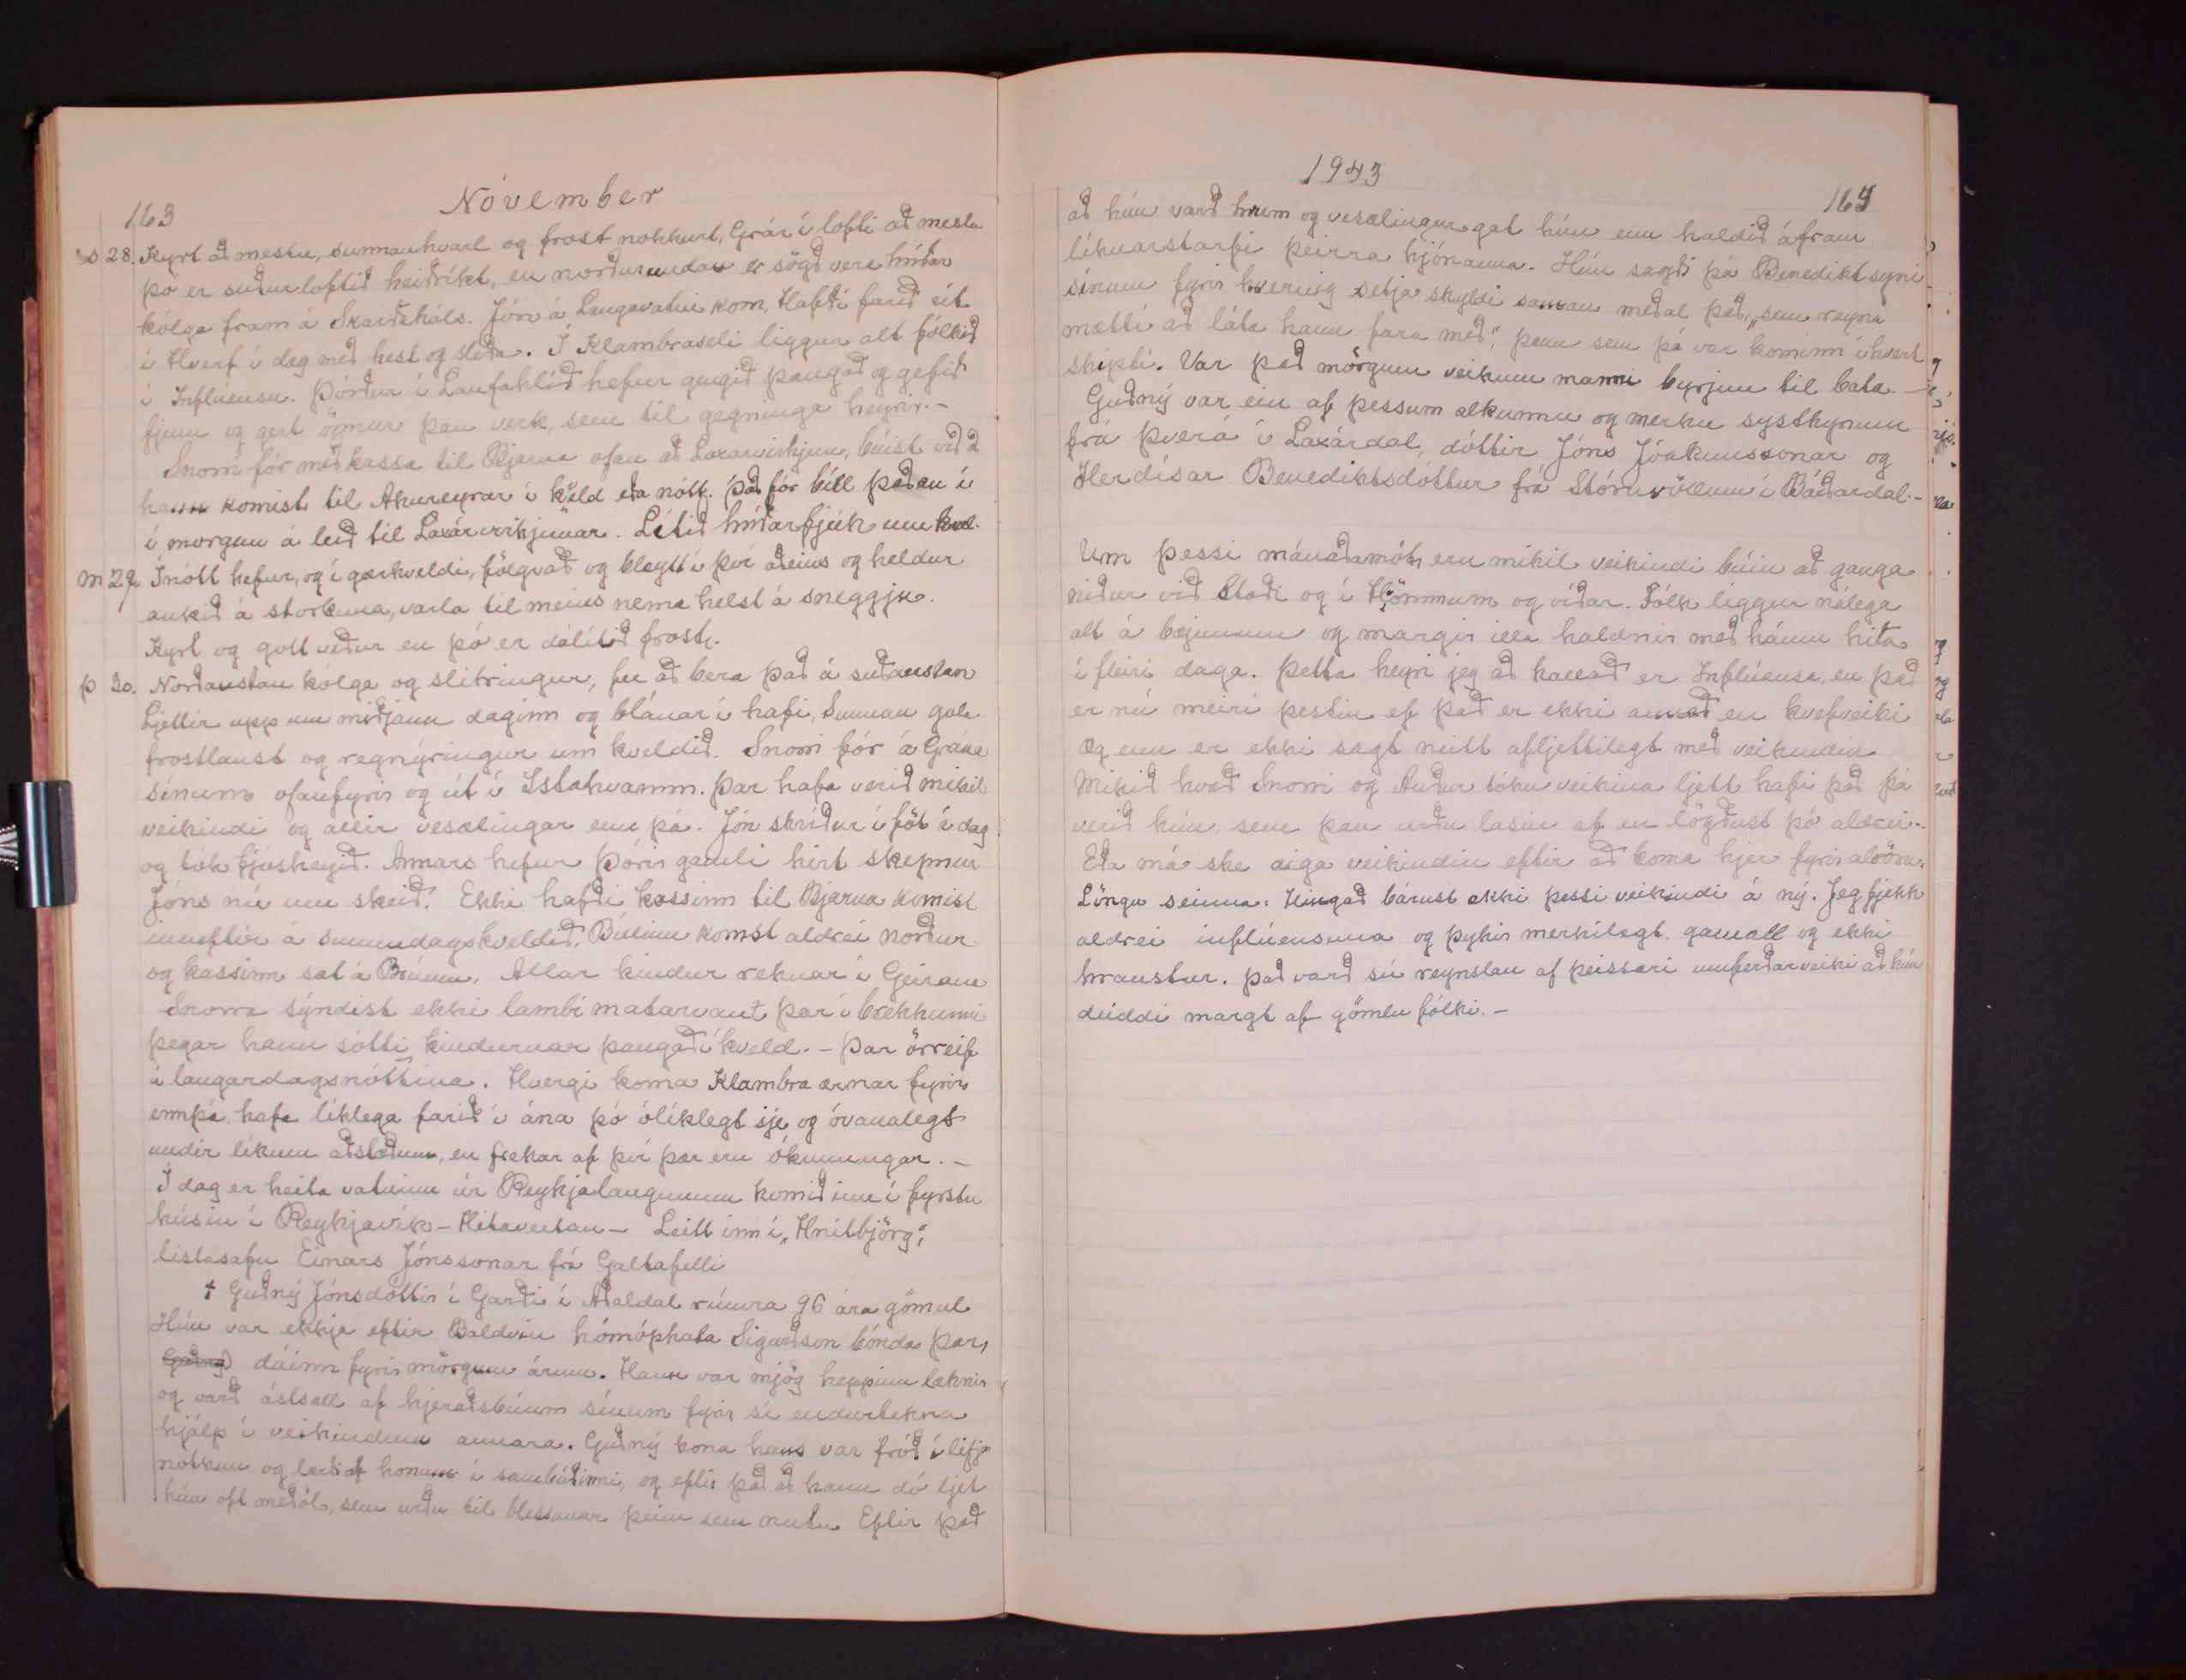 163
Nóvember
s 28. Kyrt að mestu, sunnanhvarl og frost nokkurt, Grár í lofti að mestu
þó er suðurloftið heiðríkt, en norðurundan er sögð vera hríðar
kólga fram á Skarðaháls. Jón á Langavatni kom, Hafði farið út
í Hverf í dag með hest og sleða. Í Klambraseli liggur alt fólkið
í Inflúensu. Þórður í Laufahlíð hefur gengið þangað og gefið
fjenu og gert önnur þau verk, sem til gegninga heyrir. -
Snorri fór með kassa til Bjarna ofan að Laxárvirkjun, búist við að
hann komist til Akureyrar í kveld eða nótt. Það fór bíll þaðan í
í morgun á leið til Laxárvirkjunar. Lítið hríðarfjúk um kvel.
m 29. Í nótt hefur, og í gærkveldi, fölgvað og bleytt í því aðeins og heldur
aukið á storkuna, varla til meins nema helst á sneggju.
Kyrt og gott veður en þó er dálítið frost.
þ 30. Norðaustan kólga og slitringur, fer að bera það á suðaustan
Ljettir upp um miðjann daginn og blánar í hafi, Sunnan gola
frostlaust og regnýringur um kveldið. Snorri fór á Grána
sínum ofanfyrir og út í Ystahvamm. Þar hafa verið mikil
veikindi og allir vesælingar enn þá. Jón skríður í föt í dag
og tók fjósheyið. Annars hefur Þórir gamli hirt skepnur
Jóns nú um skeið. Ekki hafði kassinn til Bjarna komist
inneftir á sunnudagskveldið. Bíllinn komst aldrei norður
og kassinn sat á Brúum. Allar kindur reknar í Geirana
Snorra sýndist ekki lambi matarvant þar í brekkunni
þegar hann sótti kindurnar þangað í kveld. - Þar örreif
á laugardagsnóttina. Hvergi koma Klambra ærnar fyrir
ennþá, hafa líklega farið í ána þó ólíklegt sje og óvanalegt
undir líkum aðstæðum, en frekar af því þær eru ókunnugar. -
Í dag er heita vatninu úr Reykjalaugunum komið inn í fyrstu
húsin í Reykjavík - Hitaveitan - Leitt inn í „Hnitbjörg“
listasafn Einars Jónssonar frá Galtafelli
† Guðný Jónsdóttir í Garði í Aðaldal rúmra 96 ára gömul
Hún var ekkja eftir Baldvin hómóphata Sigurðson bónda þar,
Guðný dáinn fyrir mörgum árum. Hann var mjög heppinn læknir
og varð ástsæll af hjeraðsbúum sínum fyrir sí endurtekna
hjálp í veikindum annara. Guðný kona hans var fróð í lifja
notkun og lærði af honum í sambúðinni, og eftir það að hann dó ljet
hún oft meðöl, sem urðu til blessunar þeim sem nutu Eftir það
1943
164
að hún varð hrum og vesælingur gat hún enn haldið áfram
líknarstarfi þeirra hjónanna. Hún sagði þá Benedikt syni
sínum fyrir hvernig setja skyldi saman meðal það, „sem reyna
mætti að láta hann fara með,“ þann sem þá var kominn í hvert
skipti. Var það mörgum veikum manni byrjun til bata. -
Guðný var ein af þessum alkunnu og merku systkynum
frá Þverá í Laxárdal, dóttir Jóns Jóakimssonar og
Herdísar Benediktsdóttur frá Stóruvöllum í Bárðardal. -
Um þessi mánaðamót eru mikil veikindi búin að ganga
niður við Staði og í Hvömmum og víðar. Fólk liggur nálega
alt á bæjunum og margir illa haldnir með háum hita
í fleiri daga. Þetta heyri jeg að kallað er Inflúensa, en það
er nú meiri pestin ef það er ekki annað en kvefveiki
Og enn er ekki sagt neitt afljettilegt með veikindin
Mikið hvað Snorri og Auður tóku veikina ljett hafi það þá
verið hún, sem þau urðu lasin af en lögðust þó aldrei. -
Eða má ske eiga veikindin eftir að koma hjer fyrir alvöru.
Löngu seinna: Hingað bárust ekki þessi veikindi á ný. Jeg fjekk
aldrei inflúensuna og þykir merkilegt. gamall og ekki
hraustur. Það varð sú reynslan af þeissari umferðarveiki að hún
deiddi margt af gömlu fólki. -